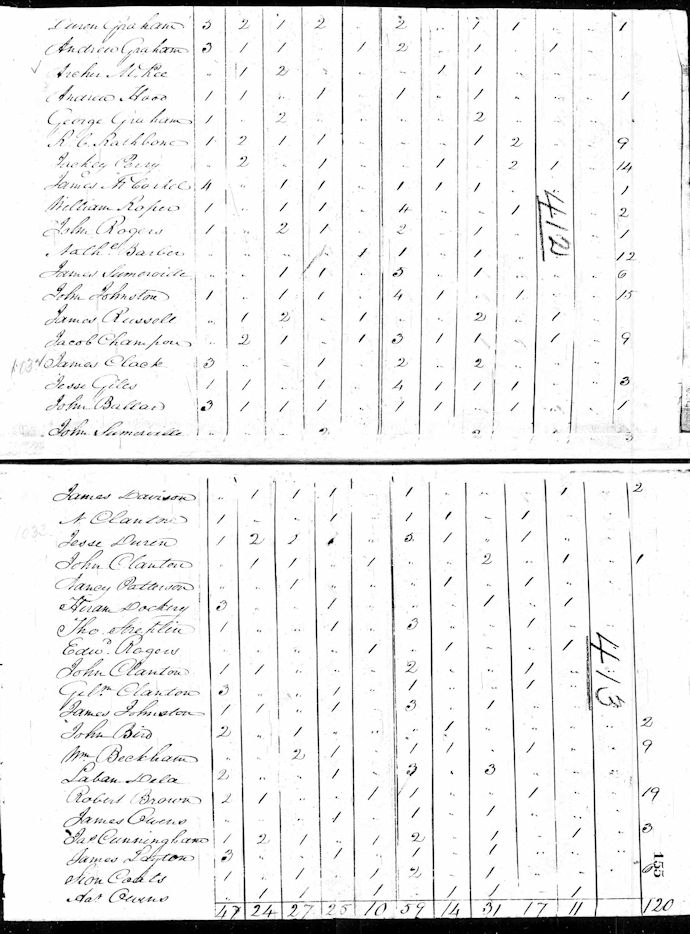 Duren Graham 3 2 1 2 .. 2 .. 1 .. .. .. 1
Andrew Graham 3 1 1 .. 1 2 .. 1 .. 1 ..
Archer McKee .. 1 2 .. .. .. 1 1 .. .. ..
Andrew Hood 1 1 .. 1 .. 1 .. 1 .. .. .. 1
George Graham 1 .. 2 .. .. .. .. 2 .. .. ..
R. C. Rathbone 1 2 1 1 .. .. .. 1 2 .. .. 9
Perry .. 2 .. 1 .. .. 1 .. 2 1 .. 14
James 4 .. 1 1 .. 1 1 1 .. .. .. 1
William Roper 1 .. 1 1 .. 4 .. .. 1 .. .. 2
John Rogers 1 .. 2 1 .. 2 .. 1 .. .. .. 1
Nathl Barber .. .. .. .. 1 1 .. 1 .. .. .. 12
James Sumerville .. .. 1 1 .. 3 .. 1 .. .. .. 6
John Johnston 1 .. 1 1 .. 4 1 .. 1 .. .. 15
James Russell .. 1 2 .. 1 .. .. 2 .. 1 ..
Jacob Champion .. 2 1 .. 1 3 1 1 .. 1 .. 9
James Clack 3 .. .. 1 .. 2 .. 2 .. .. ..
Jesse Giles 1 1 .. 1 .. 4 1 1 1 .. .. 3
John Ballard 3 1 1 1 .. 1 1 1 1 .. .. 1
John Sumerville .. .. .. 2 .. .. .. 2 .. .. .. 3
412
James Davison .. 1 1 1 .. 1 .. .. .. 1 2
N Clanton 1 .. .. 1 .. 1 1 .. 1 ..
Jesse Duren 1 2 1 1 .. 3 1 .. 1 ..
John Clanton .. 1 1 .. 1 .. .. 2 .. 1 1
Nancy Patterson .. .. 1 .. .. .. 1 .. 1 ..
Hiram Dockery 3 .. .. 1 .. .. .. 1 .. 1
Tho. 1 .. .. 1 .. 3 .. .. 1 ..
Edwd Rogers .. .. .. .. 1 .. 1 .. 1 1
John Clanton 1 1 .. .. .. 2 .. .. 1 ..
Gilm Clanton 3 .. .. 1 .. 1 .. .. 1 ..
James Johnston 1 1 .. 1 .. 3 .. 1 .. ..
John Bird 2 .. 1 .. .. .. 1 .. .. .. 2
Wm Beckham .. .. 2 1 .. 1 1 .. 1 .. 9
Laban Dela 2 .. .. 1 .. 3 .. 3 .. ..
Robert Brown 2 1 .. .. 1 1 .. 1 .. .. 19
James Owens .. .. .. 1 .. 1 .. 1 .. ..
Jas Cunningham 1 2 1 1 .. 2 .. 1 .. 1 3
James Layton 3 .. .. 1 1 1 .. 1 .. ..
.. .. 1 1 1 2 .. 1 .. .. 6
Owens .. 1 1 .. 1 .. 1 1 .. 1
47 24 27 25 10 59 14 31 17 11 120
413
155